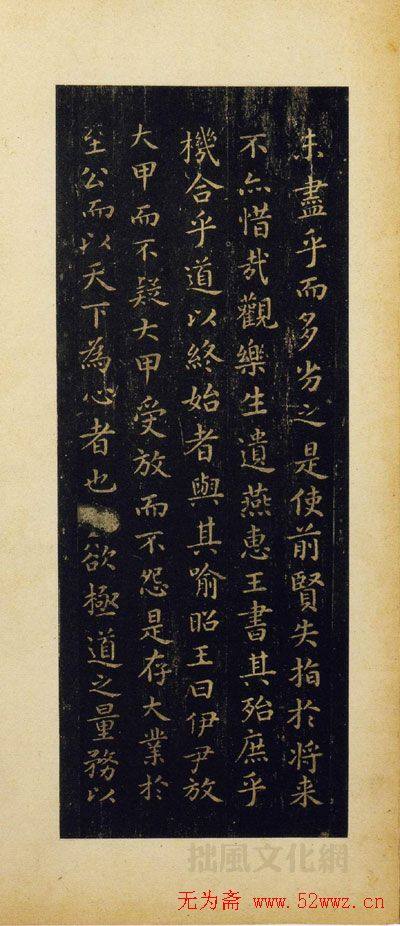 未盡乎而多劣之是使前賢失指於将来
不亦惜哉觀樂生遺燕惠王書其殆庶乎
機合乎道以終始者與其喻昭王曰伊尹放
大甲而不疑大甲受放而不怨是存大業於
至公而以天下為心者也欲極道之量務以
拙風文化網
无为斋 www.52wwz.cn